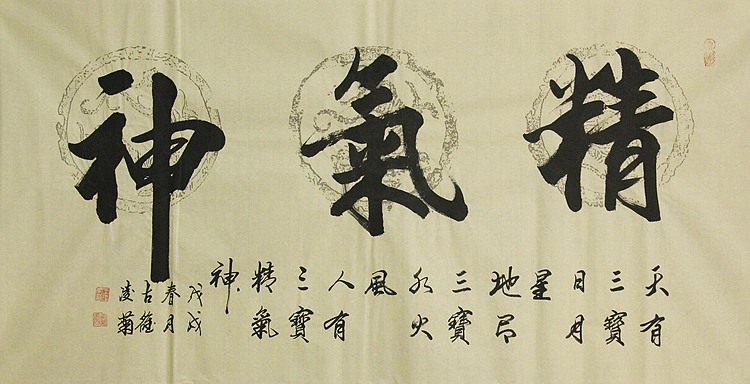 精氣神
天有
三寶
日月
星
地有
三寶
水火
風
人有
三寶
精氣
神
戊戌
春月
古徐
凌菊